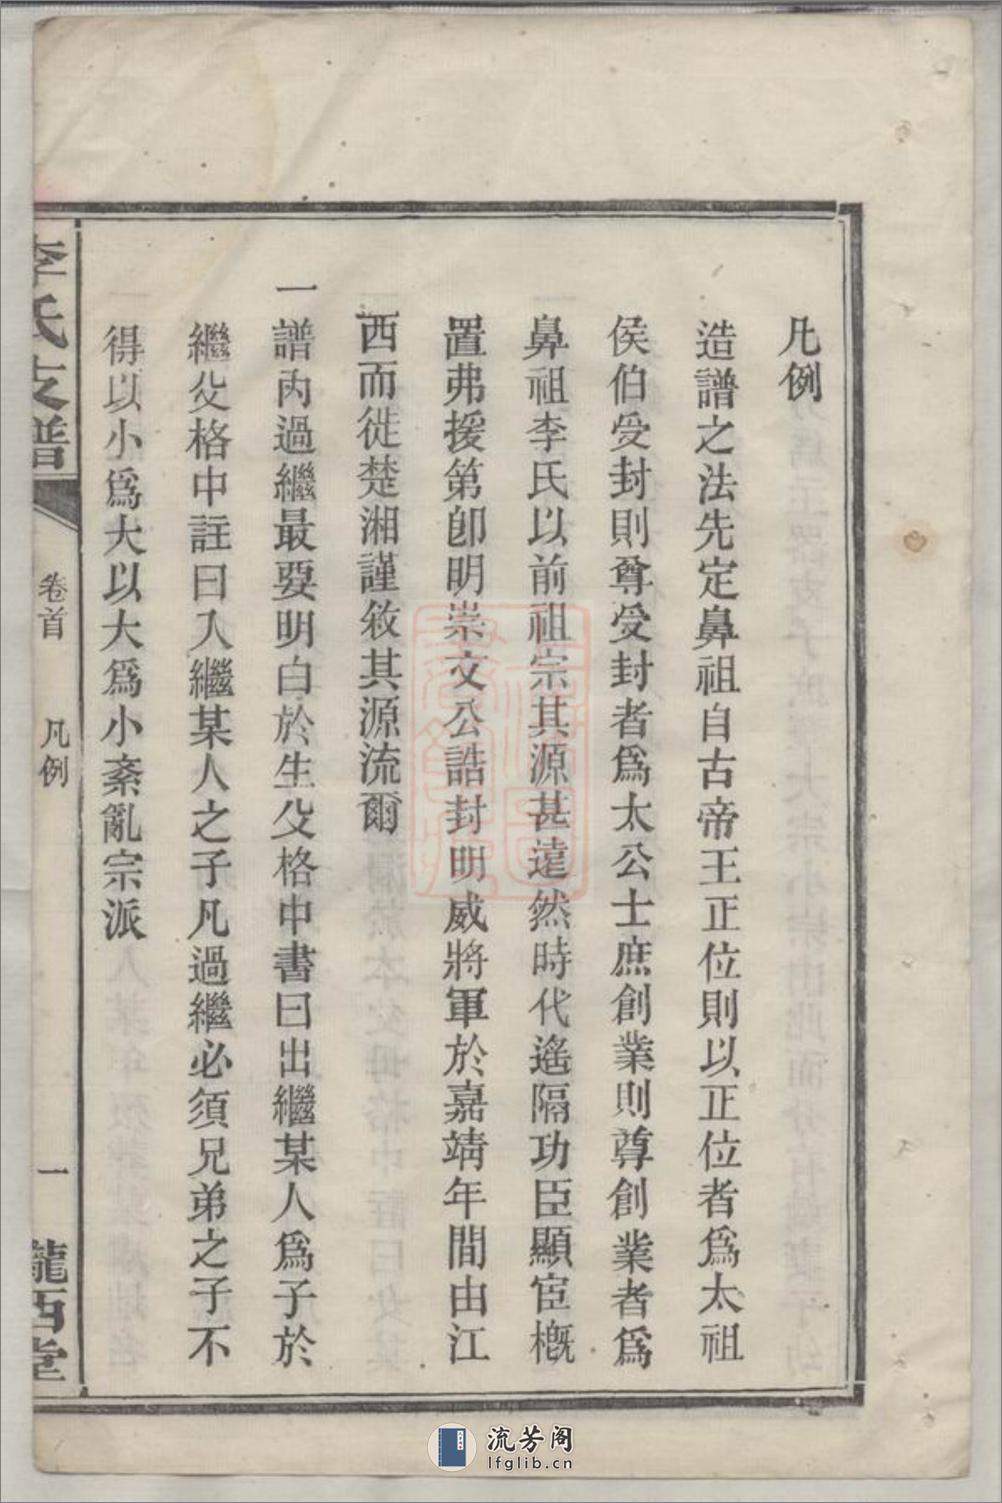 凡例
造譜之法先定鼻祖自古帝王正位則以正位者爲太祖
侯伯受封則尊受封者爲太公士庶創業則尊創業者爲
鼻祖李氏以前祖宗其源甚遠然時代遙隔功臣顯宦槪
置弗援第卽明崇文公誥封明威將軍於嘉靖年間由江
西而徙楚湘謹敘其源流爾
一譜內過繼最要明白於生父格中書曰出繼某人爲子於
繼父格中註曰入繼某人之子凡過繼必須兄弟之子不
得以小爲大以大爲小紊亂宗派
李氏支譜
卷首
凡例
一
隴西堂
流芳阁
lfglib.cn